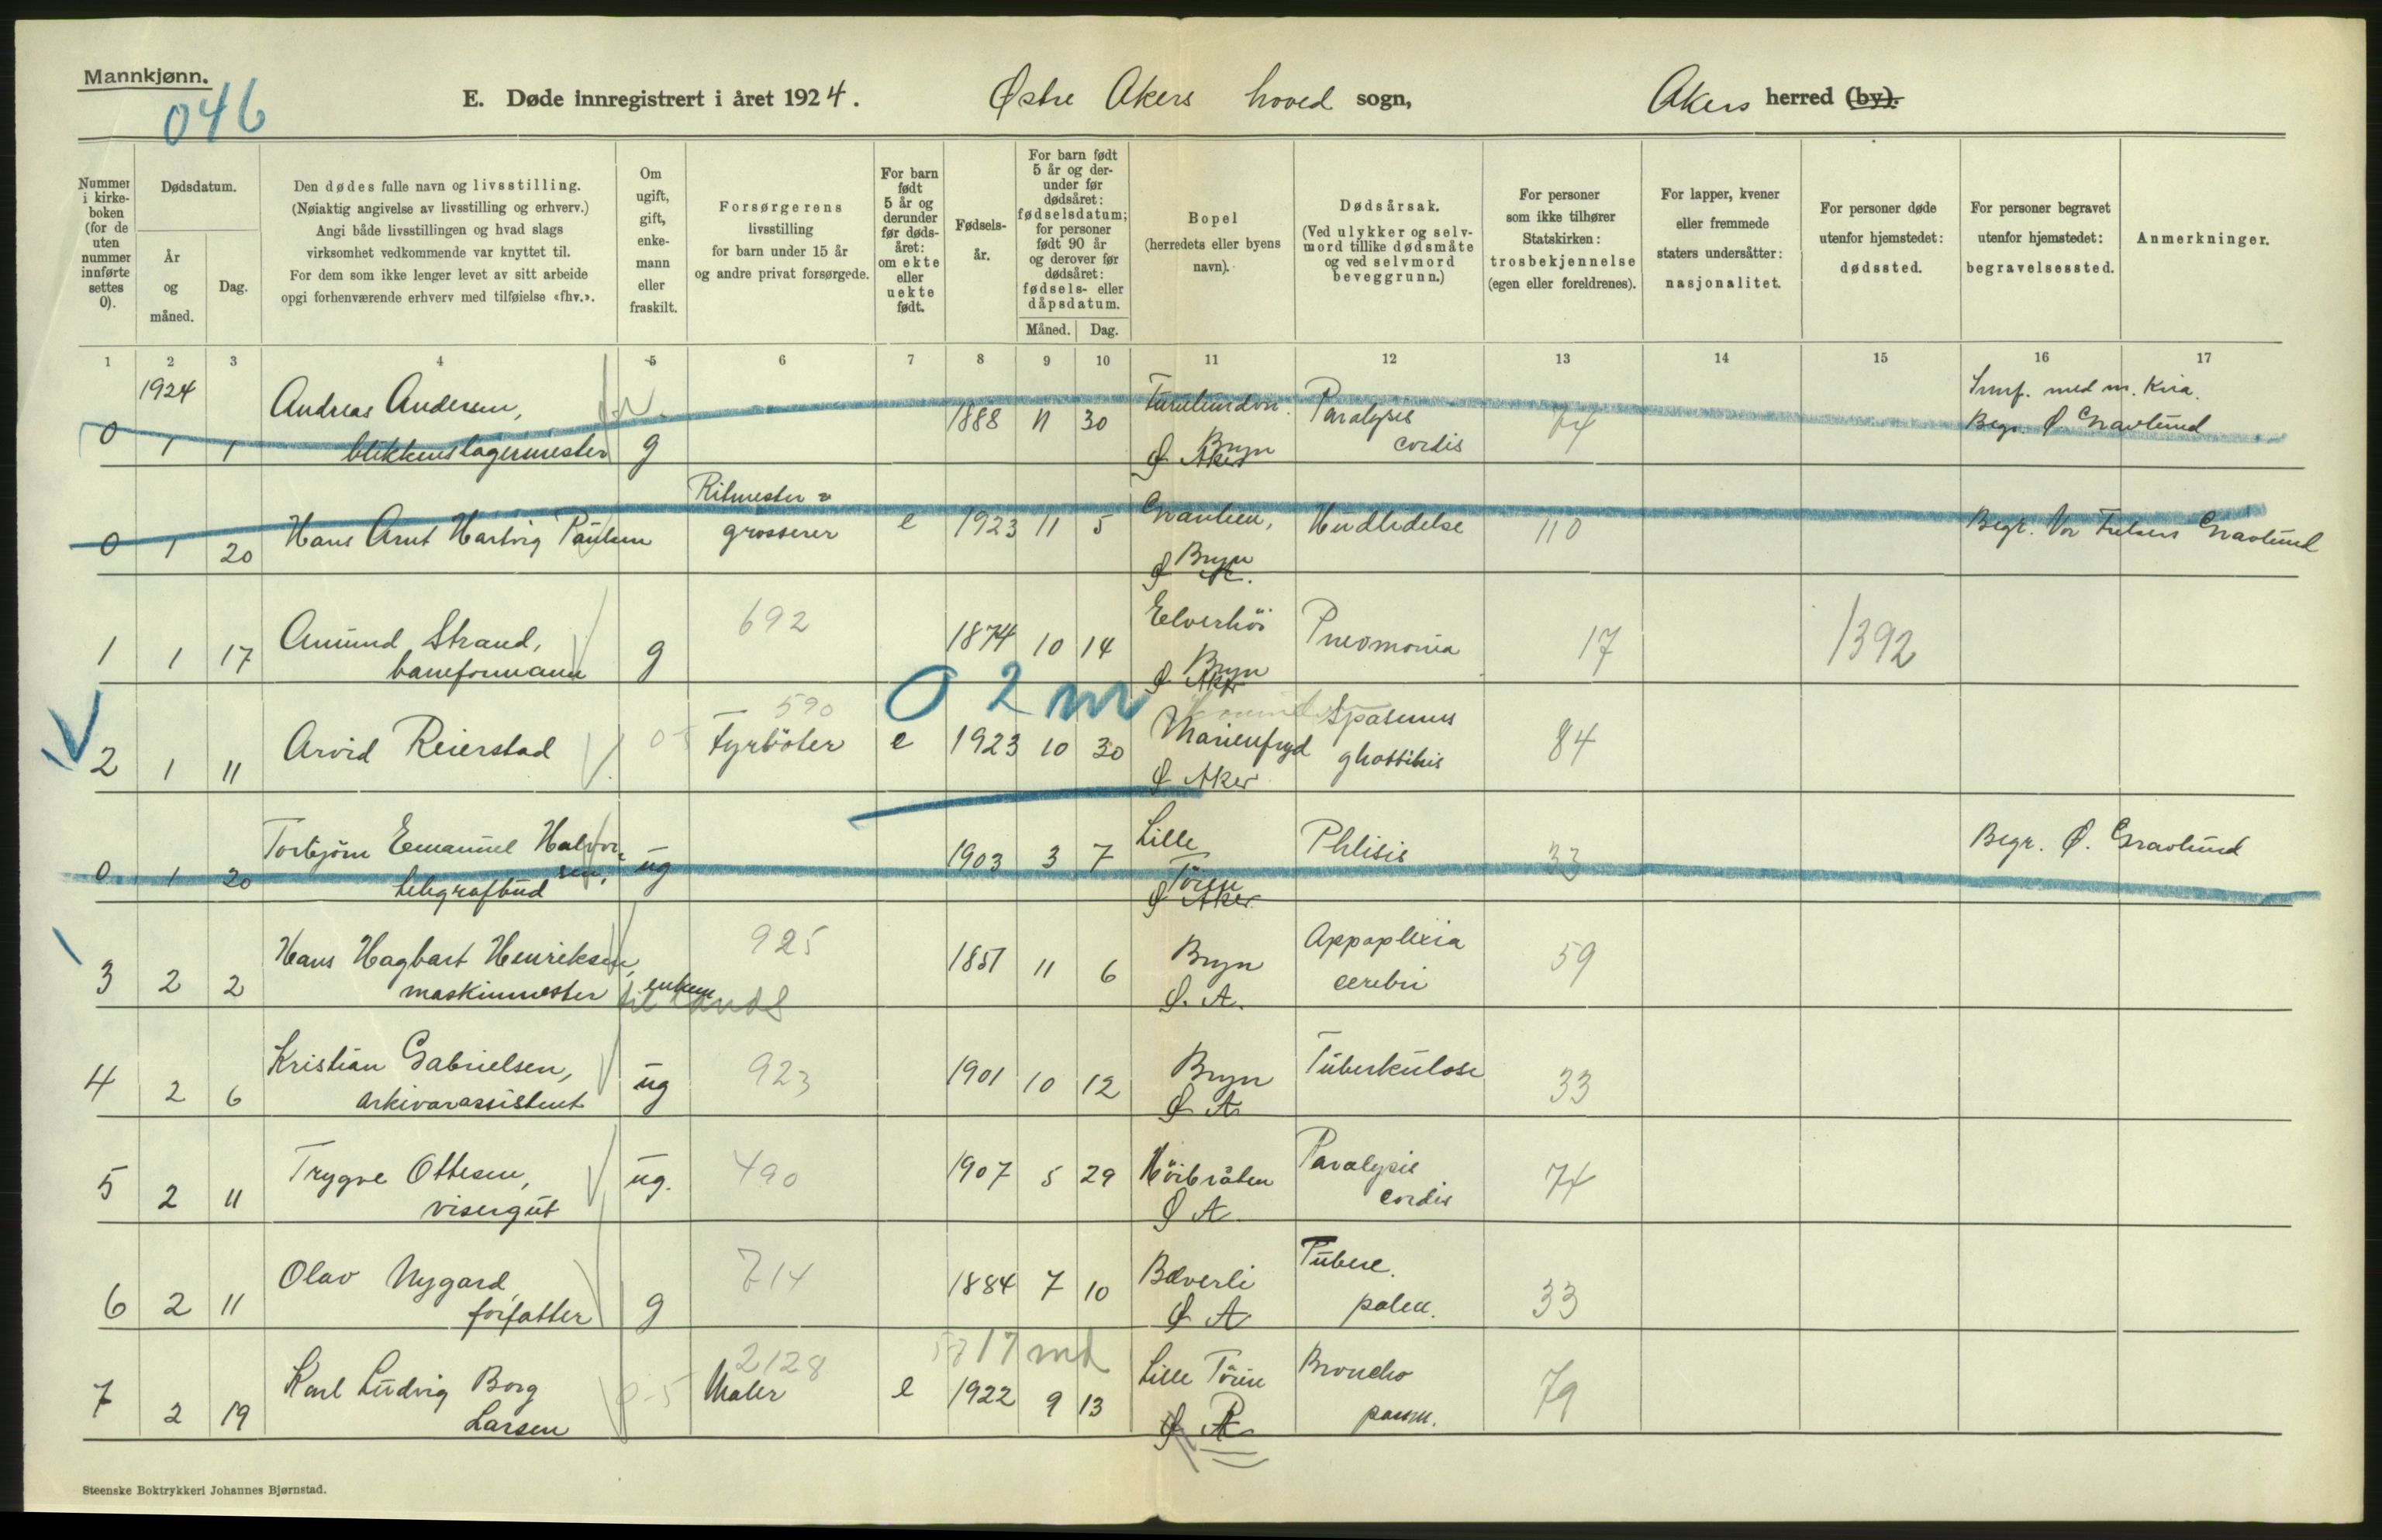 Mannkjønn.
046
E. Døde innregistrert i året 1924. Østre Akers hoved sogn, Akers herred (by).
Nummer i kirkeboken (for de uten nummer innførte settes 0).
Dødsdatum.
År og måned.
Dag.
Den dødes fulle navn og livsstilling.
(Nøiaktig angivelse av livsstilling og erhverv.)
Angi både livsstillingen og hvad slags
virksomhet vedkommende var knyttet til.
For dem som ikke lenger levet av sitt arbeide
opgi forhenværende erhverv med tilføielse «fhv.».
Om ugift, gift, enkemann eller fraskilt.
Forsørgerens
livsstilling
for barn under 15 år
og andre privat forsørgede.
For barn født 5 år og derunder før dødsåret: om ekte eller uekte født.
Fødselsår.
For barn født 5 år og derunder før dødsåret: fødselsdatum; for personer født 90 år og derover før dødsåret: fødsels- eller dåpsdatum.
Måned. Dag.
Bopel
(herredets eller byens navn).
Dødsårsak.
(Ved ulykker og selvmord tillike dødsmåte og ved selvmord beveggrunn.)
For personer som ikke tilhører Statskirken: trosbekjennelse (egen eller foreldrenes).
For lapper, kvener eller fremmede staters undersåtter: nasjonalitet.
For personer døde utenfor hjemstedet: dødssted.
For personer begravet utenfor hjemstedet: begravelsessted.
Anmerkninger.
1 2 3 4 5 6 7 8 9 10 11 12 13 14 15 16 17
1924
0 1 1 Andreas Andersen, g 1888 11 30 Paralysis 74 med m. Kria.
blikkenslagermester Bryn Ø. Aker cordis Begr. Ø. Gravlund
0 1 20 Hans Arnt Hartvig Paulsen Ritmester = e 1923 11 5 Hudlidelse 110 Begr. Vor Frelsers Gravlund
grosserer Bryn Ø A.
1 1 17 Amund Strand, g 692 1874 10 14 Elverhöi Pneomonia 17 1392
baneformann Bryn Ø. Aker
02m
2 1 11 Arvid Reierstad 05 590 Fyrböter e 1923 10 30 Marienfryd Spasmus 84
Ø Aker glottidis
0 1 20 Torbjörn Emanuel Halvor= ug 1903 3 7 Lille Phtisis 33 Begr. Ø. Gravlund
sen, telegrafbud Tören Ø Aker
3 2 2 Hans Hagbart Henriksen, 925 1851 11 6 Bryn Appoplexia 59
maskinmester enkem til lands Ø. A. cerebri
4 2 6 Kristian Gabrielsen, ug 923 1901 10 12 Bryn Tuberkulose 33
arkivarassistent Ø A
5 2 11 Trygve Ottesen, ug. 490 1907 5 29 Höibråten Paralysis 74
visergut Ø A cordis
6 2 11 Olav Nygard, g 714 1884 7 10 Bæverli Tuberc. 33
forfatter Ø A
17 md
7 2 19 Karl Ludvig Borg 0-5 2128 Maler e 1922 9 13 Lille Tören Broncho 79
Larsen Ø A
Steenske Boktrykkeri Johannes Bjørnstad.